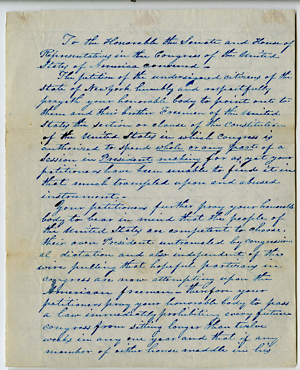 To the Honorable the Senate and House of
Representatives in the Congress of the United
States of America convened.
The petition of the undersigned citizens of the
State of New York humbly and respectfully
prayeth your honorable body to point out to
them and their brother Freemen of the United
States the section or clause of the Constitution
of the United States in which Congress is
authorised to spend whole or any part of a
Session in President making for as yet your
petitioners have been unable to find it in
that much trampled upon and abused
instrument.
Your petitioners further pray your honorable
body to bear in mind that the people of
the United States are competent to choose
their own President untrameled by congression
al dictation and also independent of the
wire pulling that hopeful partizans in
congress are now attempting upon the
American freemen therefore your
petitioners pray your honorable body to pass
a law immediately prohibiting every future
congress from sitting longer than twelve
weeks in any one year and that if any
member of either house meddle in his